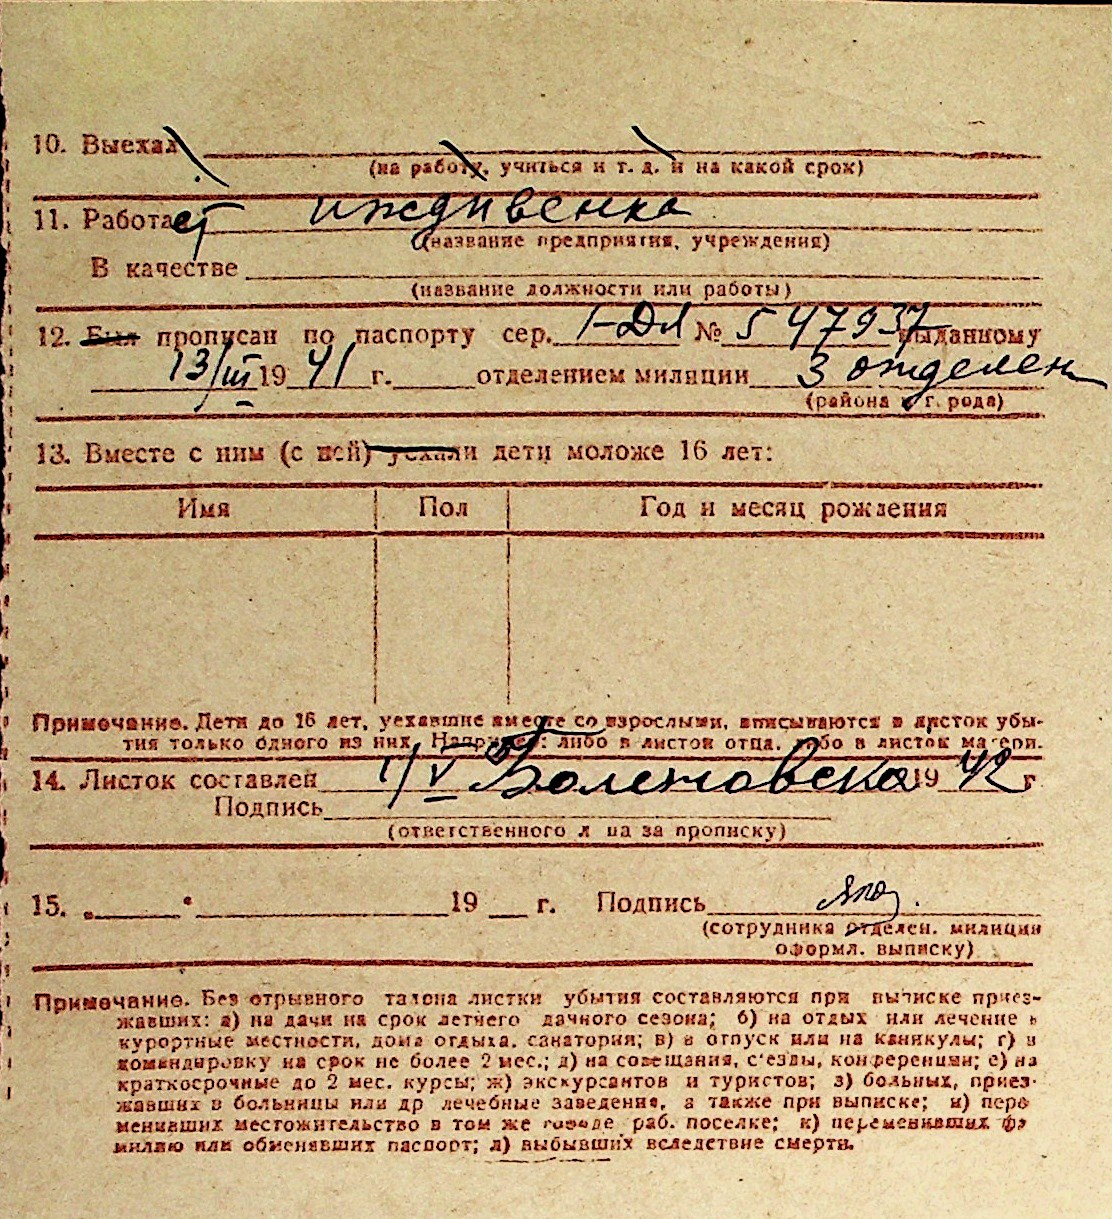 10. Выехал
(на работу, учиться и т. д. и на какой срок)
11. Работает иждивенка
(название предприятия, учреждения)
В качестве
(название должности или работы)
12. Был прописан по паспорту сер. I-ДЛ № 547937 выданному
13/III 1941 г. отделением милиции 3 отделен
(района и г. рода)
13. Вместе с ним (с ней) уехали дети моложе 16 лет:
Имя Пол Год и месяц рождения
Примечание. Дети до 16 лет, уехавшие вместе со взрослыми, вписываются в листок убы-
тия только одного из них. Например: либо в листок отца, либо в листок матери.
14. Листок составлен 1/V 1942 г
Подпись
(ответственного лица за прописку)
15. „ “ 19 г. Подпись
(сотрудника отделен. милиции
оформл. выписку)
Примечание. Без отрывного талона листки убытия составляются при выписке приез-
жавших: а) на дачи на срок летнего дачного сезона; б) на отдых или лечение в
курортные местности, дома отдыха, санатории; в) в отпуск или на каникулы; г) в
командировку на срок не более 2 мес.; д) на совещания, с'езды, конференции; е) на
краткосрочные до 2 мес. курсы; ж) экскурсантов и туристов; з) больных, приез-
жавших в больницы или др лечебные заведения, а также при выписке; и) пере
менивших местожительство в том же городе, раб. поселке; к) переменивших фа
милию или обменявших паспорт; л) выбывших вследствие смерти.